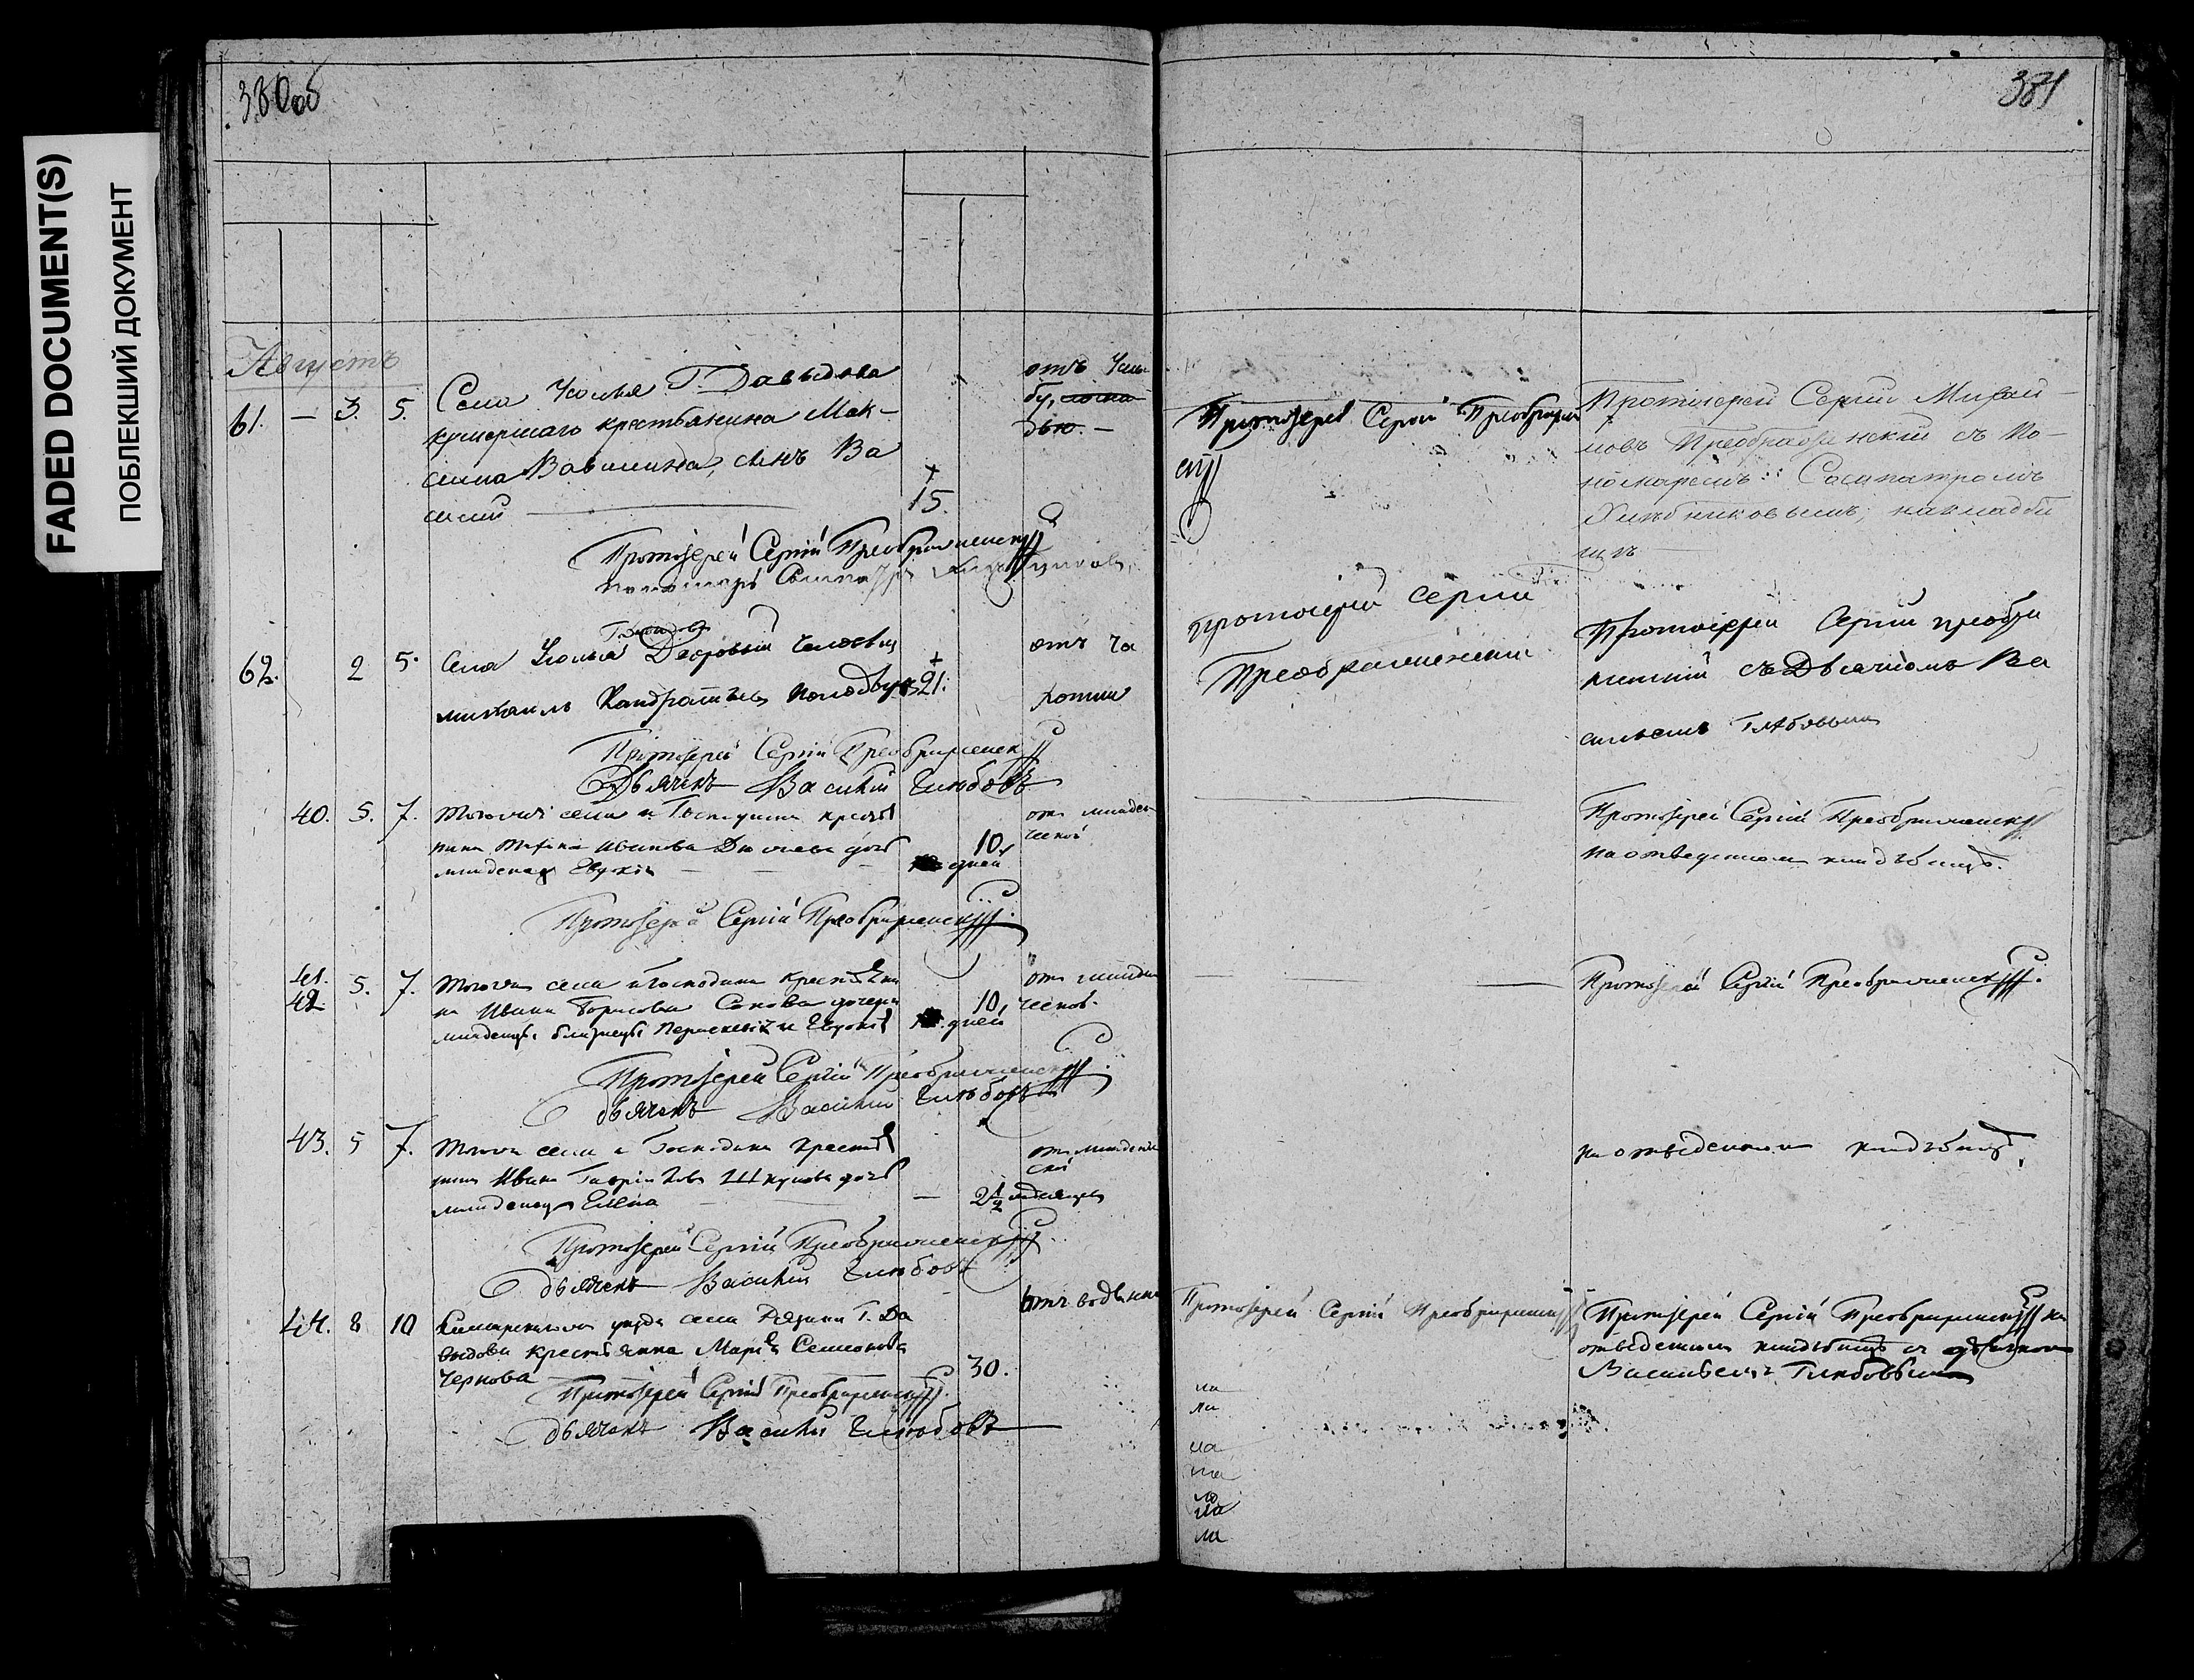 FADED DOCUMENT(S)
ПОБЛЕКШИЙ ДОКУМЕНТ
380об
381
Августъ
61. — 3. 5. Села Усолья Г. Давыдова
умершаго крестьянина Мак-
сима Вавилина, сынъ Ва
силий 15.
отъ
Протоіерей Сергій Преображенскій
Протоіерей Сергій Преображен
скій
Протоіерей Сергій Михай-
ловъ Преображенскій съ по-
номаремъ Сосипатромъ
Хлѣбниковымъ, на кладби
щѣ
62. 2 5. Села Усолья Дворовый человѣкъ
Михаилъ Кандратьевъ 21.
отъ ча
хотки
Протоіерей Сергій Преображенскій
Дьячекъ Василий Глѣбовъ
протоіерей Сергій
Преображенский
Протоіерей Сергій преобра
женский съ Дьячкомъ Ва
сильемъ Глѣбовымъ
40. 5. 7. Тогожъ села и Господина кресть
нина Ивана дочь
младенецъ Евдокія 10 дней
отъ младен-
ческой
Протоіерей Сергій Преображенскій
Протоіерей Сергій Преображенскій
на отведенномъ кладбищѣ.
41. 42. 5. 7. Тогожъ села и Господина крестьяни
на Ивана Борисова дочери
младенцы близнецы Параскевія и Евдокія 10 дней
отъ младен
ческой.
Протоіерей Сергій Преображенскій
дьячекъ Василий Глѣбовъ
Протоіерей Сергій Преображенскій.
43. 5 7. Тогожъ села и Господина крестья
нина Ивана Гаврилова дочь
младенецъ Елена 2½ мѣсяцевъ
отъ младенче
ской
Протоіерей Сергій Преображенскій
дьячекъ Василий Глѣбовъ
на отведенномъ кладбищѣ
44. 8 10 уѣзда села Г. Да
выдова крестьянка Марья Семенова
Чернова 30.
отъ водянки
Протоіерей Сергій Преображенскій
дьячекъ Василий Глѣбовъ
Протоіерей Сергій Преображенскій
Протоіерей Сергій Преображенскій на
отведенномъ кладбищѣ съ дьячкомъ
Васильемъ Глѣбовымъ